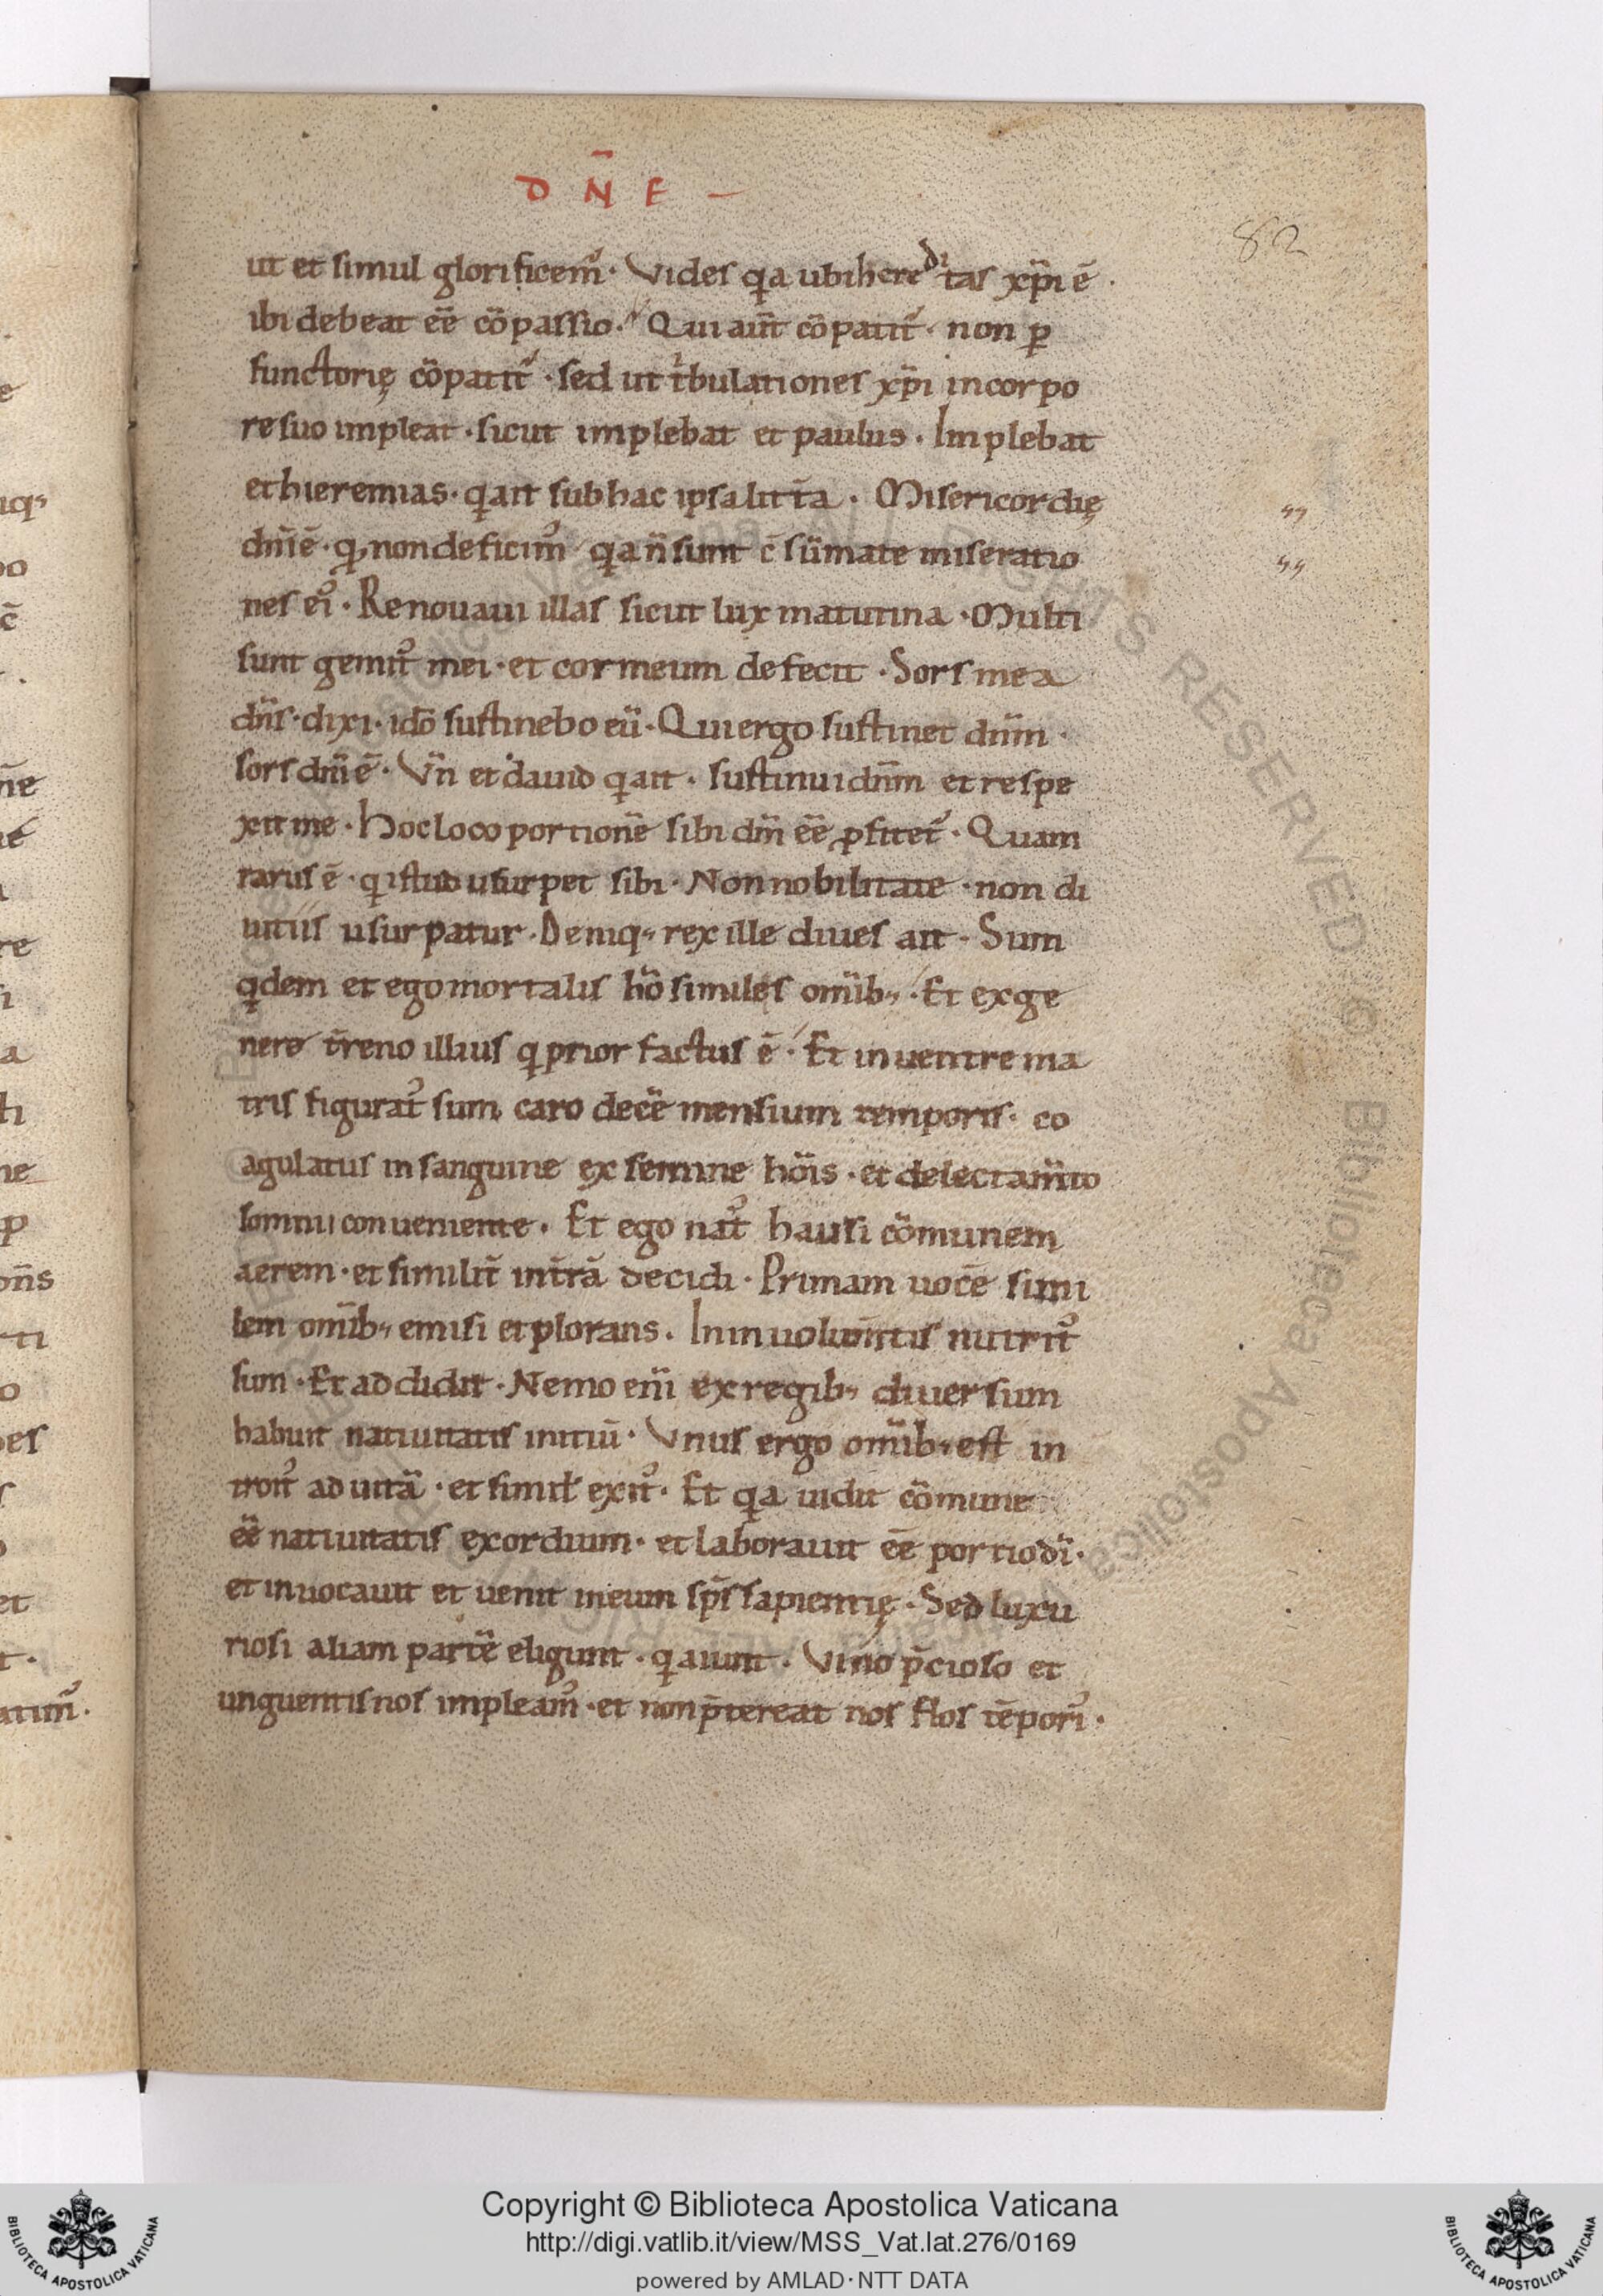 D N̄ E —
82
ut et simul glorificem᷒· Vides qa ubi heredi tas xp̄i ē ·
ibi debeat eē cōpassio· Qui aūt cōpatit᷒· non ꝑ
functorię cōpatit᷒· sed ut tⁱbulationes xp̄i in corpo
re suo impleat· sicut implebat et paulus· Implebat
et hieremias· q ait sub hac ipsa litt̄a· Misericordię
dn̄i ē· qꝫ non deficim᷒ qa n̄ sunt c̄sūmate miseratio
nes ei᷒· Renouaui illas sicut lux matutina· Multi
sunt gemit᷒ mei· et cor meum defecit· Sors mea
dn̄s· dixi· idō sustinebo eū· Qui ergo sustinet dn̄m·
sors dn̄i ē· Vn̄ et dauid q ait· sustinui dn̄m et respe
xit me· Hoc loco portionē sibi dn̄m eē ꝓfitet᷒· Quam
rarus ē· q istud usurpet sibi· Non nobilitate· non di
uitiis usurpatur· Deniqꝫ rex ille diues ait· Sum
qdem et ego mortalis hō similes om̄ibꝫ· Et ex ge
nere t̄reno illius q prior factus ē· Et in uentre ma
tris figurat᷒ sum caro decē mensium temporis· co
agulatus in sanguine ex semine hōis· et delectam̄to
somnii conueniente· Et ego nat᷒ hausi cōmunem
aerem· et similit̄ in t̄rā decidi· Primam uocē simi
lem om̄ibꝫ emisi et plorans· In inuolum̄tis nutrit᷒
sum· Et addidit· Nemo eni᷒ ex regibꝫ diuersum
habuit natiuitatis initiū· Vnus ergo om̄ibꝫ est in
troit᷒ ad uitā· et simil' exit᷒· Et qa uidit cōmune
eē natiuitatis exordium· et laborauit eē portio dī·
et inuocauit et uenit in eum sp̄s sapientię· Sed luxu
riosi aliam partē eligunt· q aiunt· Vino p̄cioso et
unguentis nos impleam᷒· et non p̄tereat nos flos tēpori᷒·
Copyright © Biblioteca Apostolica Vaticana
http://digi.vatlib.it/view/MSS_Vat.lat.276/0169
powered by AMLAD·NTT DATA
BIBLIOTECA APOSTOLICA VATICANA
BIBLIOTECA APOSTOLICA VATICANA